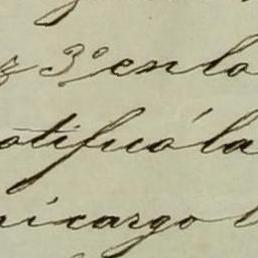 3º en lo
otificó la
i cargo